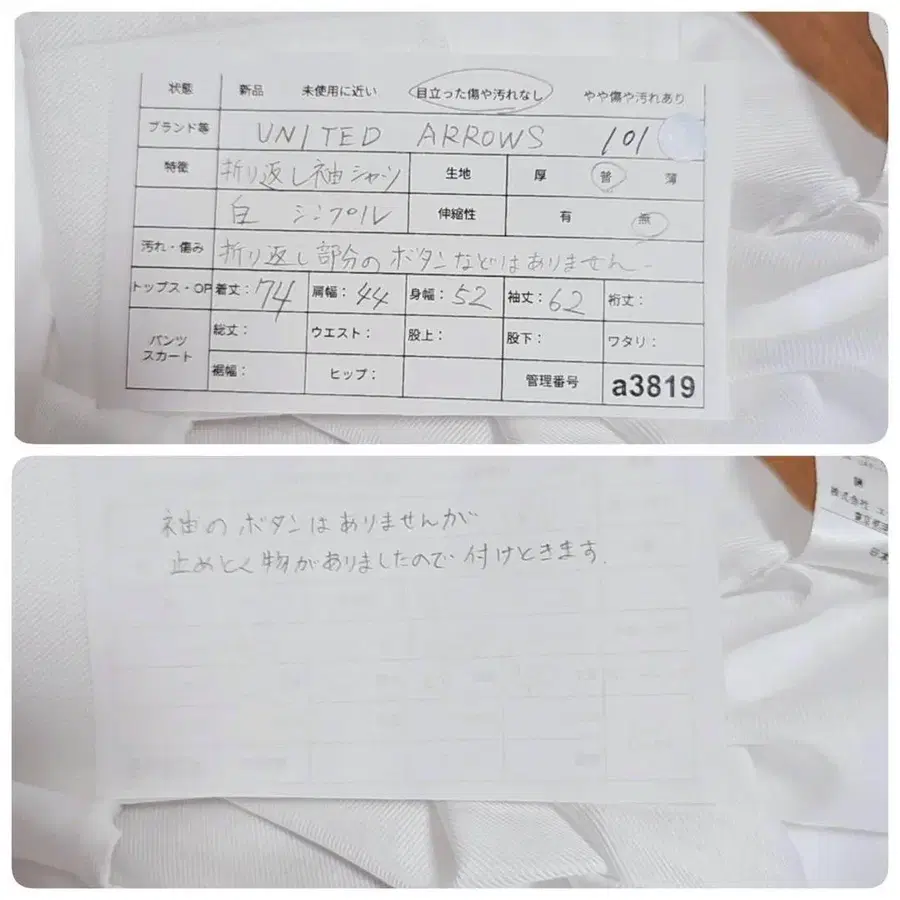 状態 新品 未使用に近い 目立った傷や汚れなし やや傷や汚れあり
ブランド等 UNITED ARROWS 101
特徴 折り返し袖シャツ 生地 厚 普 薄
白 シンプル 伸縮性 有 無
汚れ・傷み 折り返し部分のボタンなどはありません
トップス・OP 着丈:74 肩幅:44 身幅:52 袖丈:62 裄丈:
パンツ スカート 総丈: ウエスト: 股上: 股下: ワタリ:
裾幅: ヒップ: 管理番号 a3819
袖のボタンはありませんが
止めとく物がありましたので付けときます.
株式会社
東京都
日本